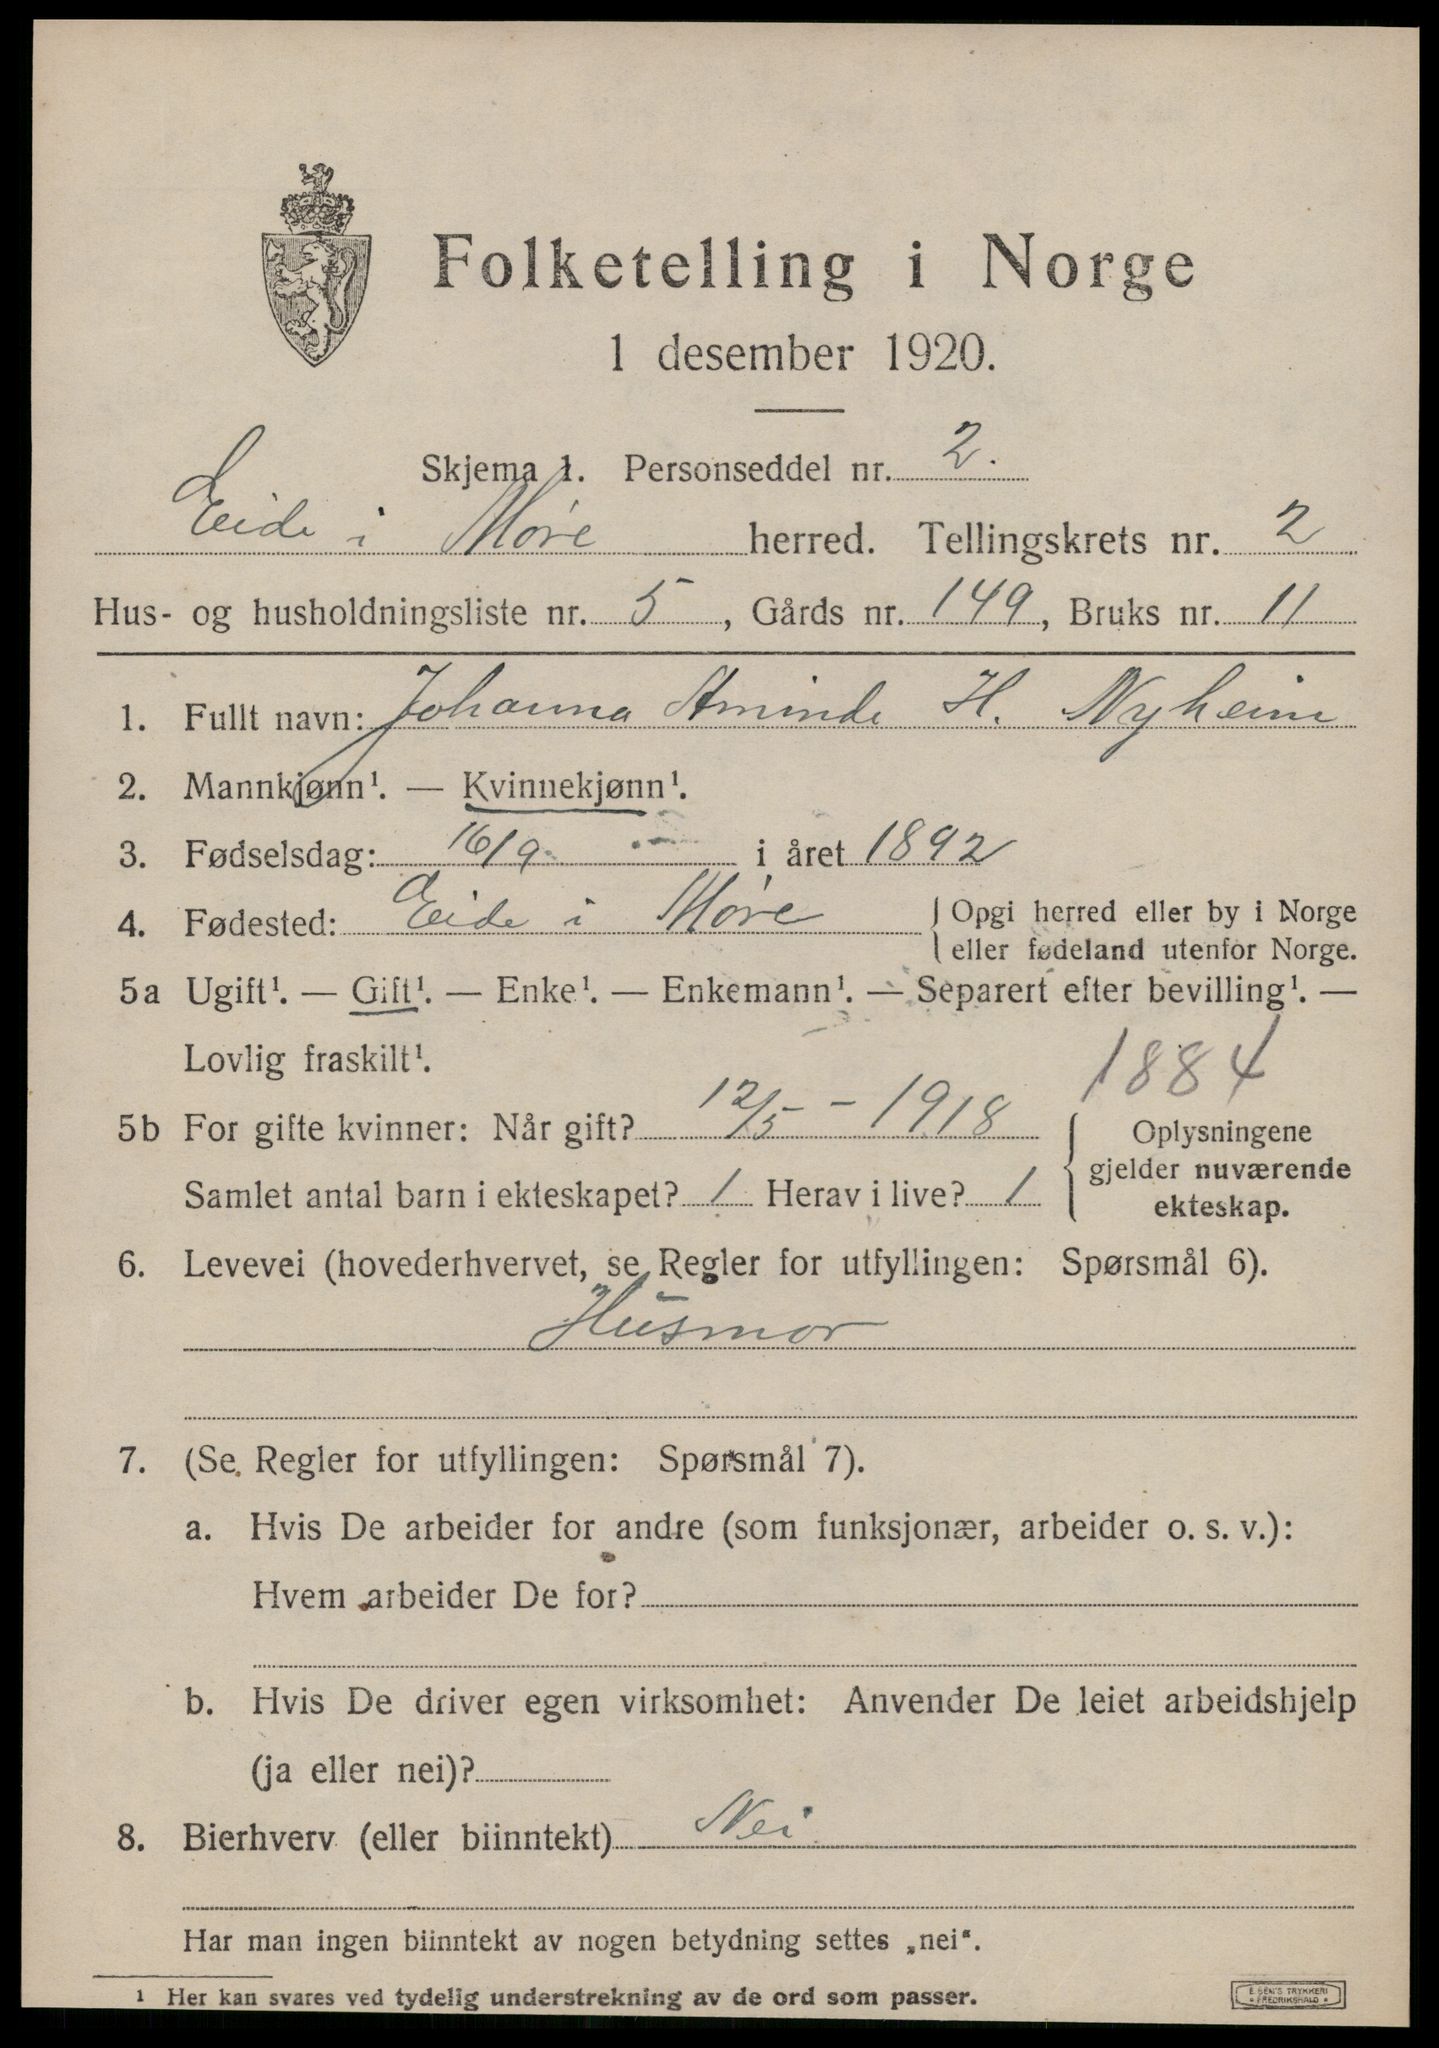 Folketelling i Norge
1 desember 1920.
Skjema 1. Personseddel nr. 2.
Eide i Møre herred. Tellingskrets nr. 2
Hus- og husholdningsliste nr. 5, Gårds nr. 149, Bruks nr. 11
1. Fullt navn: Johanna Aminde H. Nyheim
2. Mannkjønn¹. — Kvinnekjønn¹.
3. Fødselsdag: 16/9 i året 1892
4. Fødested: Eide i Møre { Opgi herred eller by i Norge
{ eller fødeland utenfor Norge.
5a Ugift¹. — Gift¹. — Enke¹. — Enkemann¹. — Separert efter bevilling¹. —
Lovlig fraskilt¹.
1884
5b For gifte kvinner: Når gift? 12/5 - 1918
Samlet antal barn i ekteskapet? 1 Herav i live? 1
{ Oplysningene
gjelder nuværende
ekteskap.
6. Levevei (hovederhvervet, se Regler for utfyllingen: Spørsmål 6).
Husmor
7. (Se Regler for utfyllingen: Spørsmål 7).
a. Hvis De arbeider for andre (som funksjonær, arbeider o. s. v.):
Hvem arbeider De for?
b. Hvis De driver egen virksomhet: Anvender De leiet arbeidshjelp
(ja eller nei)?
8. Bierhverv (eller biinntekt) Nei
Har man ingen biinntekt av nogen betydning settes „nei“.
¹ Her kan svares ved tydelig understrekning av de ord som passer.
E. SEM'S TRYKKERI
• FREDRIKSHALD •